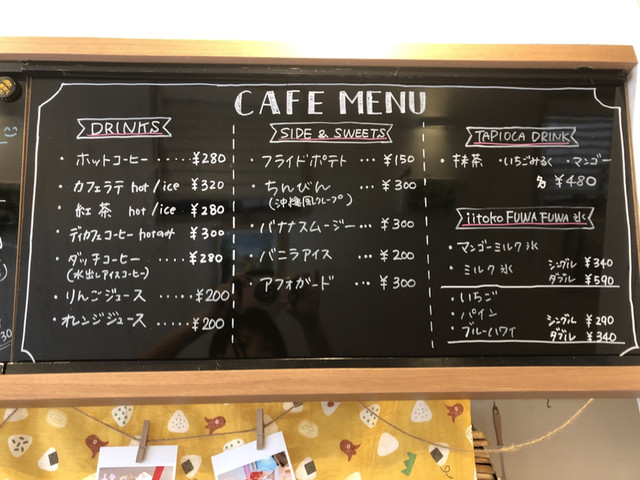 CAFE MENU
DRINKS
・ホットコーヒー ・・・・・¥280
・カフェラテ hot/ice ¥320
・紅茶 hot/ice ¥280
・ディカフェコーヒー hot ¥300
・ダッチコーヒー ・・・・・¥280
(水出しアイスコーヒー)
・りんごジュース ・・・・・¥200
・オレンジジュース ・・・・・¥200
SIDE & SWEETS
・フライドポテト ・・・¥150
・ちんびん ・・・¥300
(沖縄風クレープ)
・バナナスムージー・・・¥300
・バニラアイス ・・・¥200
・アフォガード ・・・¥300
TAPIOCA DRINK
・抹茶 ・いちごみるく ・マンゴー
各 ¥480
iitoko FUWA FUWA 氷
・マンゴーミルク氷
・ミルク氷 シングル ¥340
ダブル ¥590
・いちご
・パイン シングル ¥290
・ブルーハワイ ダブル ¥340
30